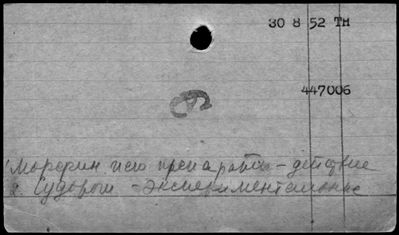 30 8 52 ТН
447006
Морфин и его препараты - действие
2. Судороги - экспериментальные